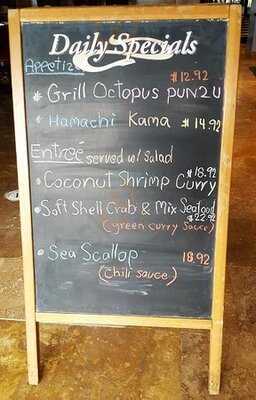 Daily Specials
Appetiz
$12.92
Grill Octopus PUN2U
Hamachi Kama $14.92
Entreé served w/ Salad
$18.92
Coconut Shrimp Curry
Soft Shell Crab & Mix Seafood
$22.92
(green curry sauce)
Sea Scallop 18.92
(chili sauce)